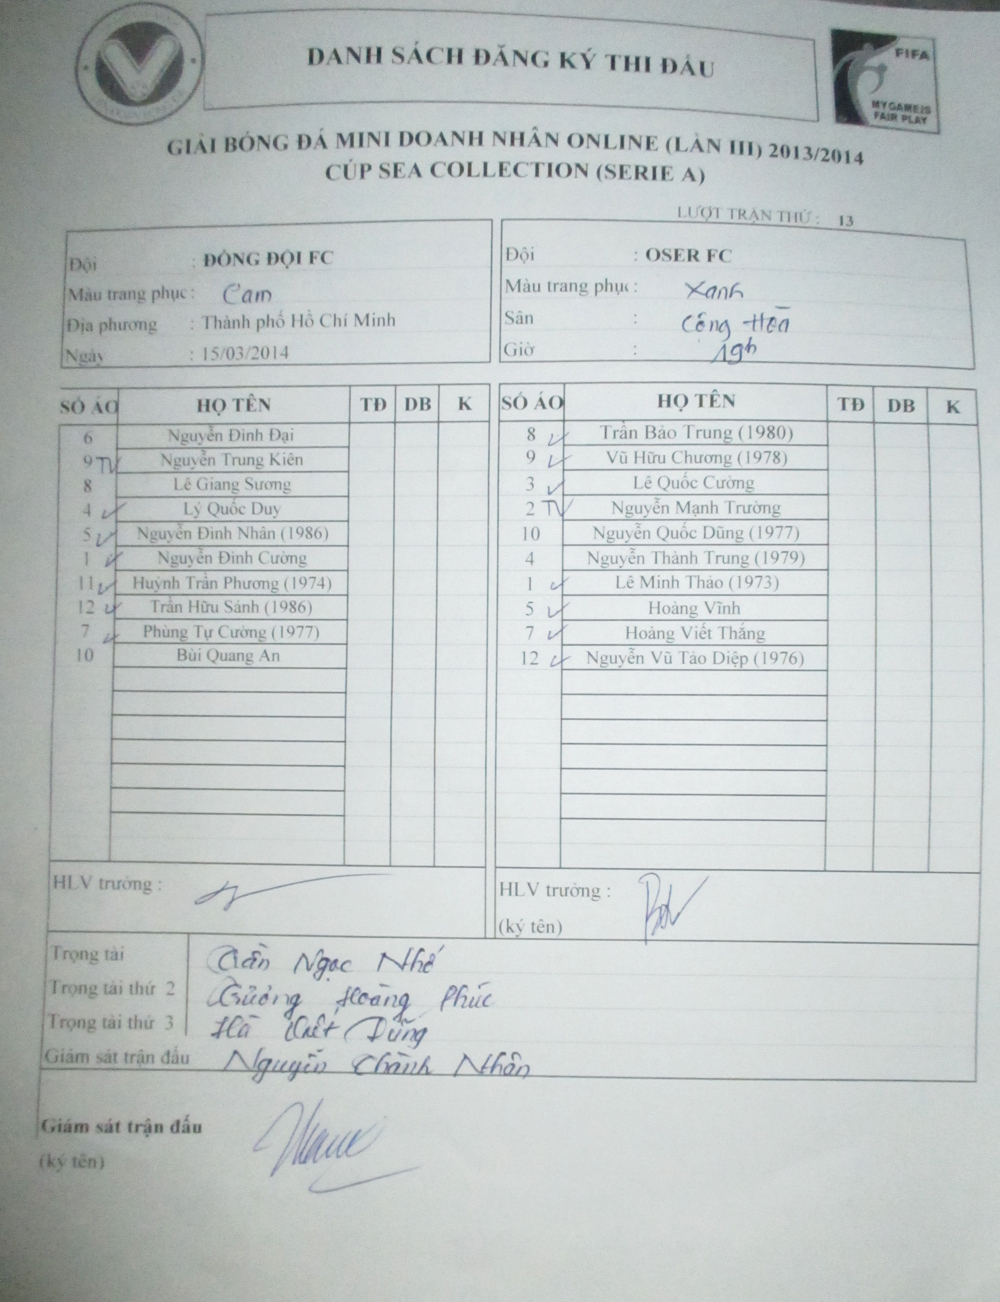 DANH SÁCH ĐĂNG KÝ THI ĐẤU
FIFA
MY GAME IS
FAIR PLAY
GIẢI BÓNG ĐÁ MINI DOANH NHÂN ONLINE (LẦN III) 2013/2014
CÚP SEA COLLECTION (SERIE A)
LƯỢT TRẬN THỨ : 13
Đội : ĐỒNG ĐỘI FC
Màu trang phục : Cam
Địa phương : Thành phố Hồ Chí Minh
Ngày : 15/03/2014
Đội : OSER FC
Màu trang phục : Xanh
Sân : Cộng Hòa
Giờ : 19h
SỐ ÁO HỌ TÊN TĐ DB K
6 Nguyễn Đình Đại
9 TV Nguyễn Trung Kiên
8 Lê Giang Sương
4 ✓ Lý Quốc Duy
5 ✓ Nguyễn Đình Nhân (1986)
1 ✓ Nguyễn Đình Cường
11 ✓ Huỳnh Trần Phương (1974)
12 ✓ Trần Hữu Sánh (1986)
7 ✓ Phùng Tự Cường (1977)
10 Bùi Quang An
SỐ ÁO HỌ TÊN TĐ DB K
8 ✓ Trần Bảo Trung (1980)
9 ✓ Vũ Hữu Chương (1978)
3 ✓ Lê Quốc Cường
2 TV Nguyễn Mạnh Trường
10 Nguyễn Quốc Dũng (1977)
4 Nguyễn Thành Trung (1979)
1 ✓ Lê Minh Thảo (1973)
5 ✓ Hoàng Vĩnh
7 ✓ Hoàng Viết Thắng
12 ✓ Nguyễn Vũ Tảo Diệp (1976)
HLV trưởng :
HLV trưởng :
(ký tên)
Trọng tài Trần Ngọc Nhớ
Trọng tài thứ 2 Trương Hoàng Phúc
Trọng tài thứ 3 Hà Dũng
Giám sát trận đấu Nguyễn Thành Nhân
Giám sát trận đấu
(ký tên)